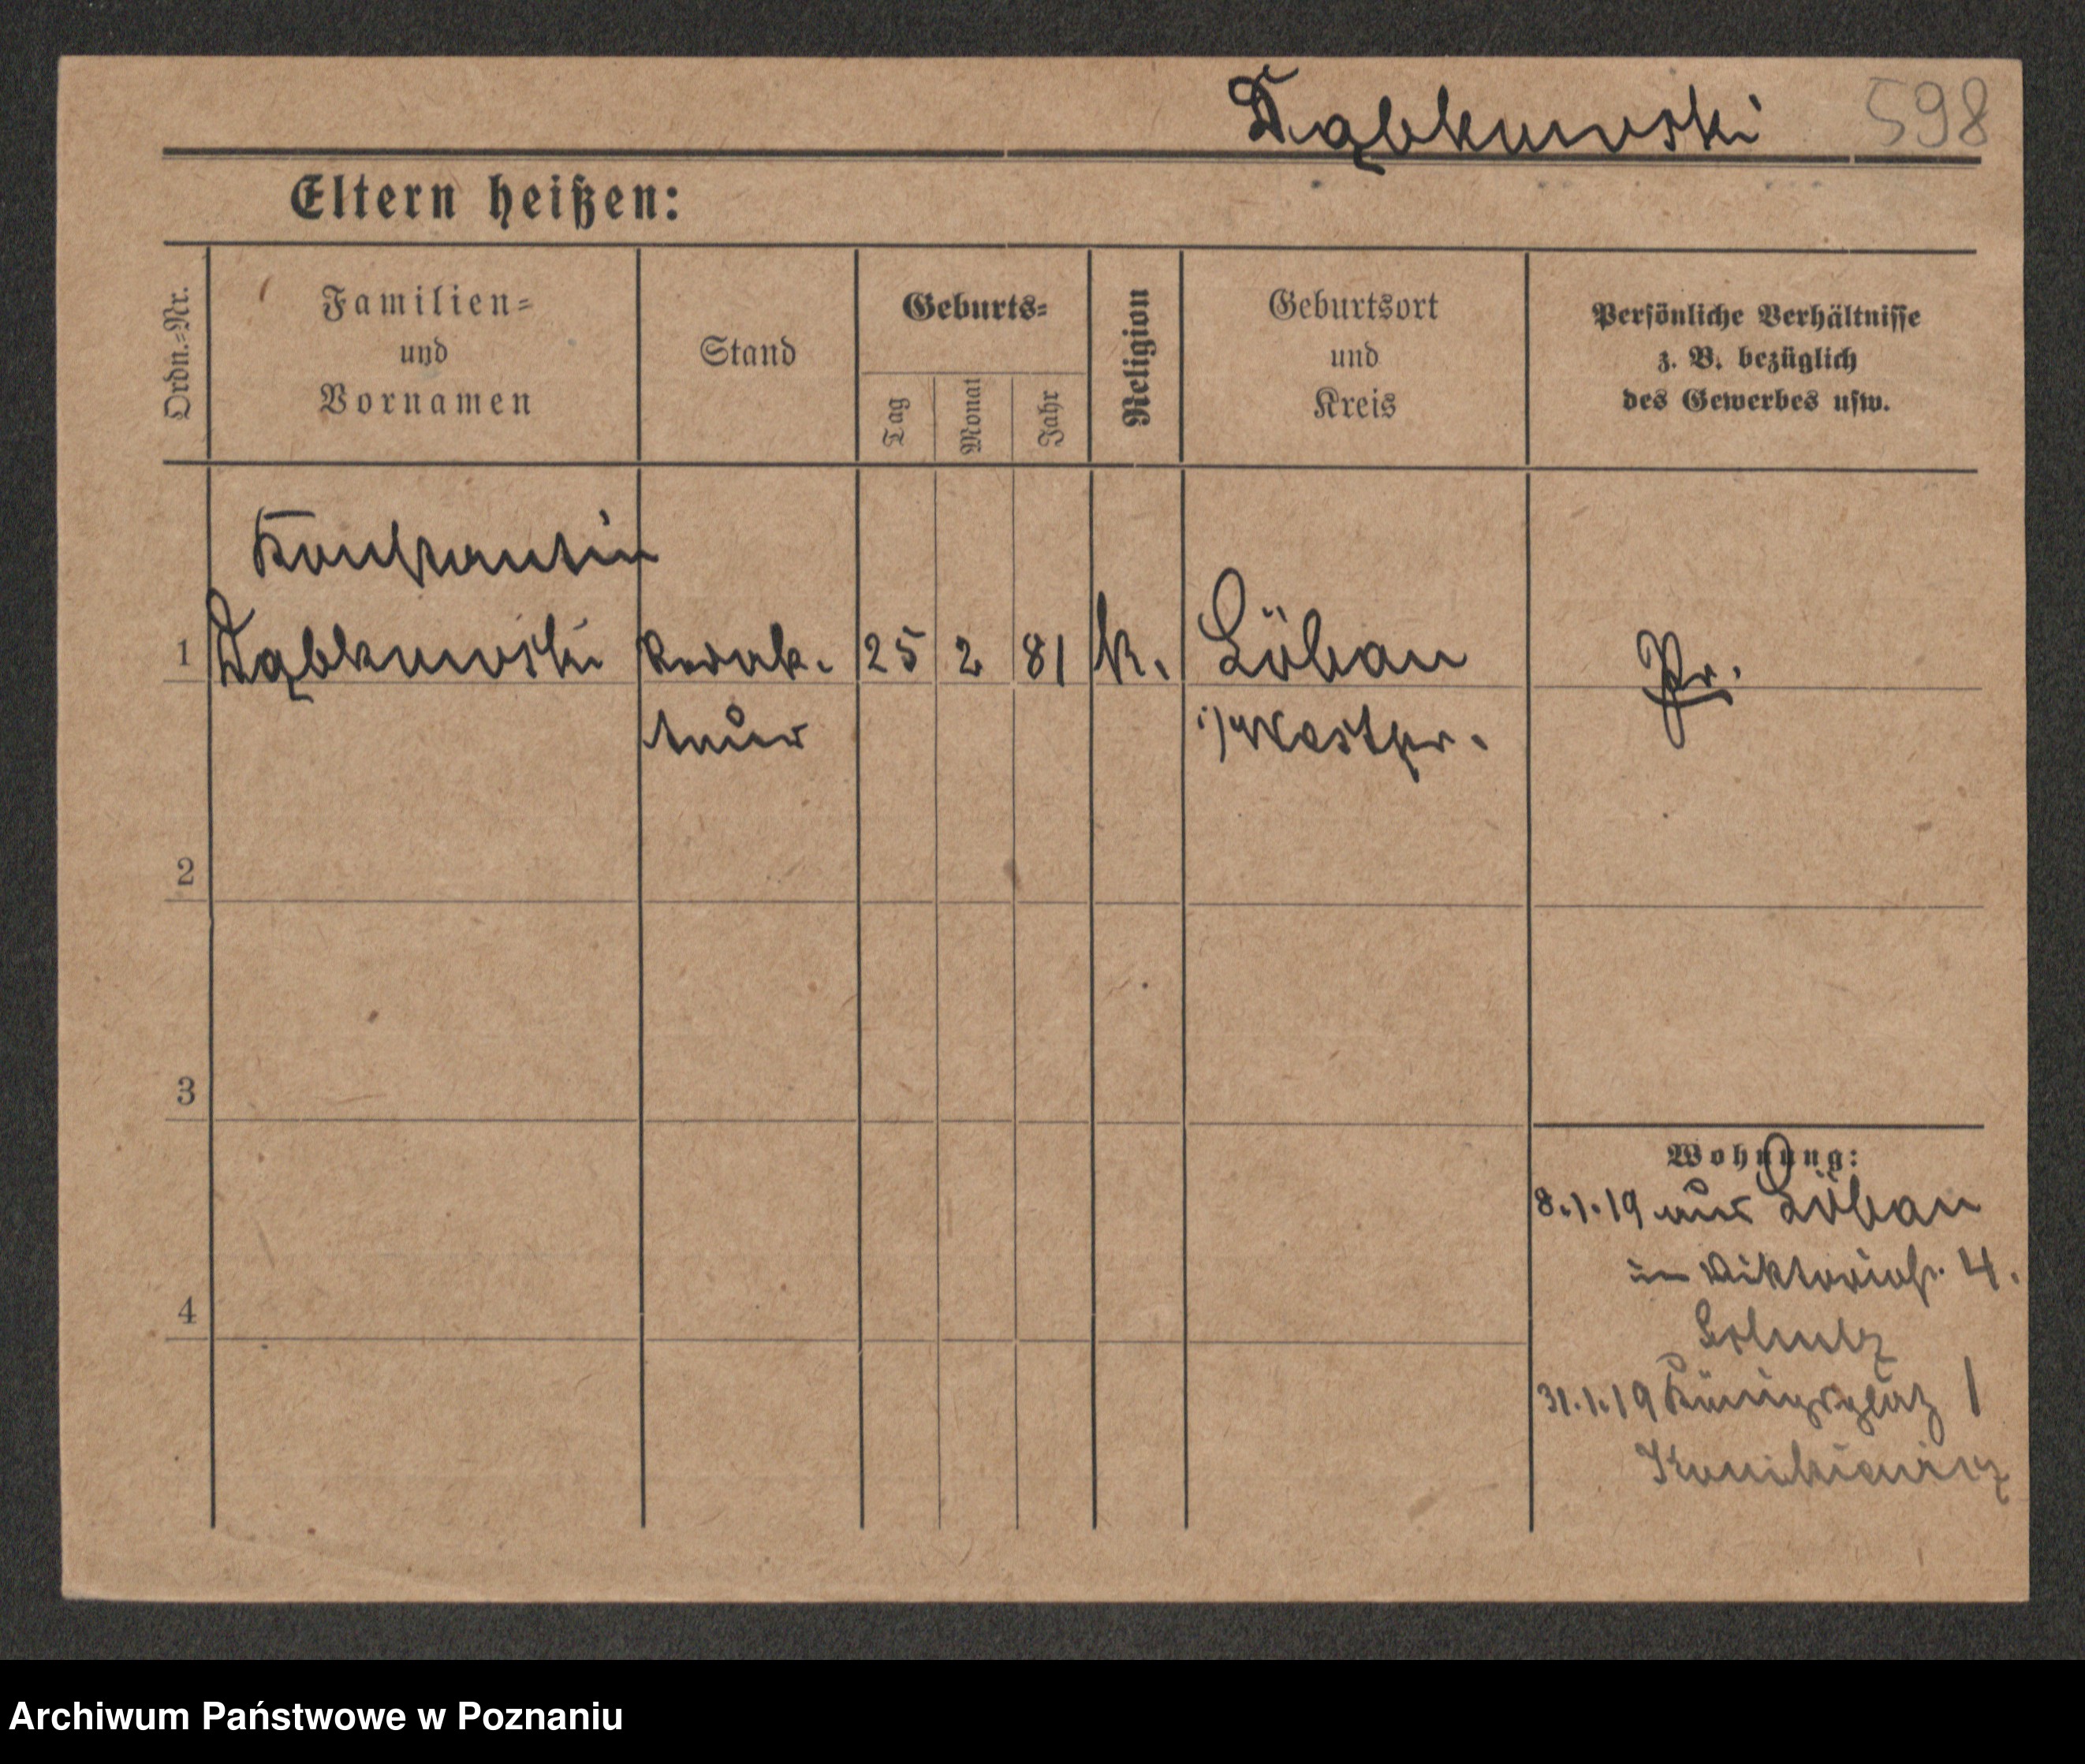 Dąbkowski 598
Eltern heißen:
Ordn.=Nr.
Familien=
und
Vornamen
Stand
Geburts=
Tag
Monat
Jahr
Religion
Geburtsort
und
Kreis
Persönliche Verhältnisse
z. B. bezüglich
des Gewerbes usw.
Konstantin
1 Dąbkowski Redak. 25 2 81 k. Löbau Pr.
teur i/Westpr.
2
3
4
Wohnung:
8.1.19 aus Löbau
in Viktoriastr. 4.
31.1.19 Königsplatz 1
Archiwum Państwowe w Poznaniu